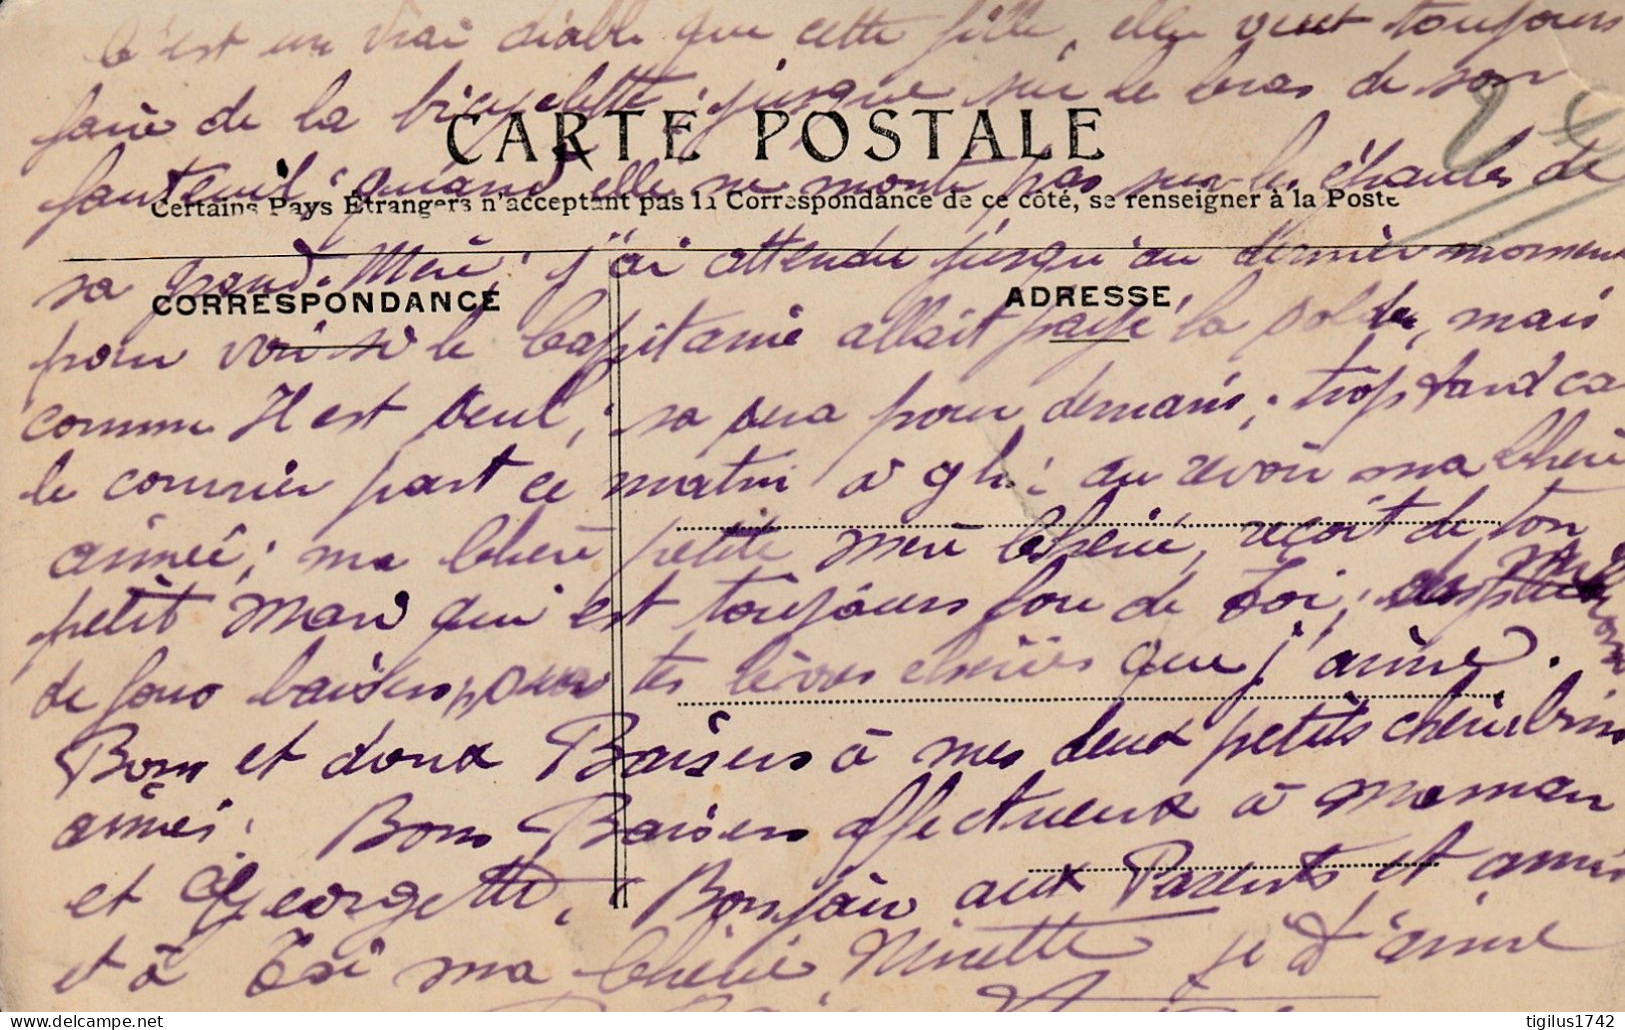 C'est un vrai diable que cette fille, elle veut toujours
faire de la bicyclette, jusque sur le bras de son
CARTE POSTALE
fauteuil; quand elle ne monte pas sur les épaules de
Certains Pays Étrangers n'acceptent pas la Correspondance de ce côté, se renseigner à la Poste
sa grand Mère; j'ai attendu jusqu'au dernier moment
CORRESPONDANCE
ADRESSE
pour voir si le Capitaine allait payé la solde, mais
comme Il est seul, sa sera pour demain; trop tard ca
le courrier part ce matin à 9 h; au revoir ma Chérie
aimée; ma Chère petite mère Chérie, reçoit de ton
petit Mari qui est toujours fou de Toi;
de fous baisers pour tes lèvres chéries que j'aime.
Bons et doux Baisers à mes deux petits chérubins
aimés. Bons Baisers affectueux à Maman
et Georgette, Bonjour aux Parents et amis
et à Toi ma Chérie Ninette je t'aime
tigilus1742